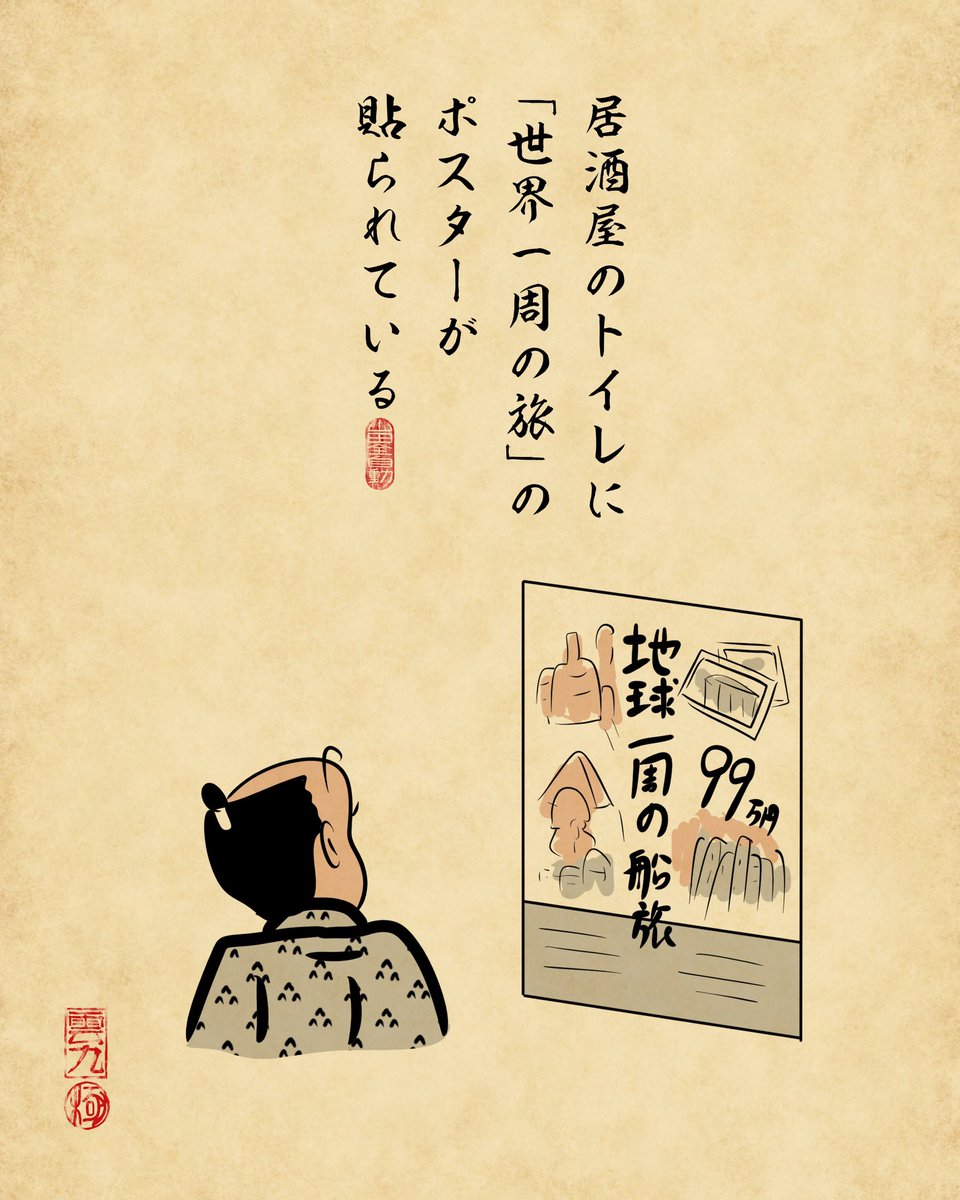 居酒屋のトイレに
「世界一周の旅」の
ポスターが
貼られている
地球一周の船旅
99万円